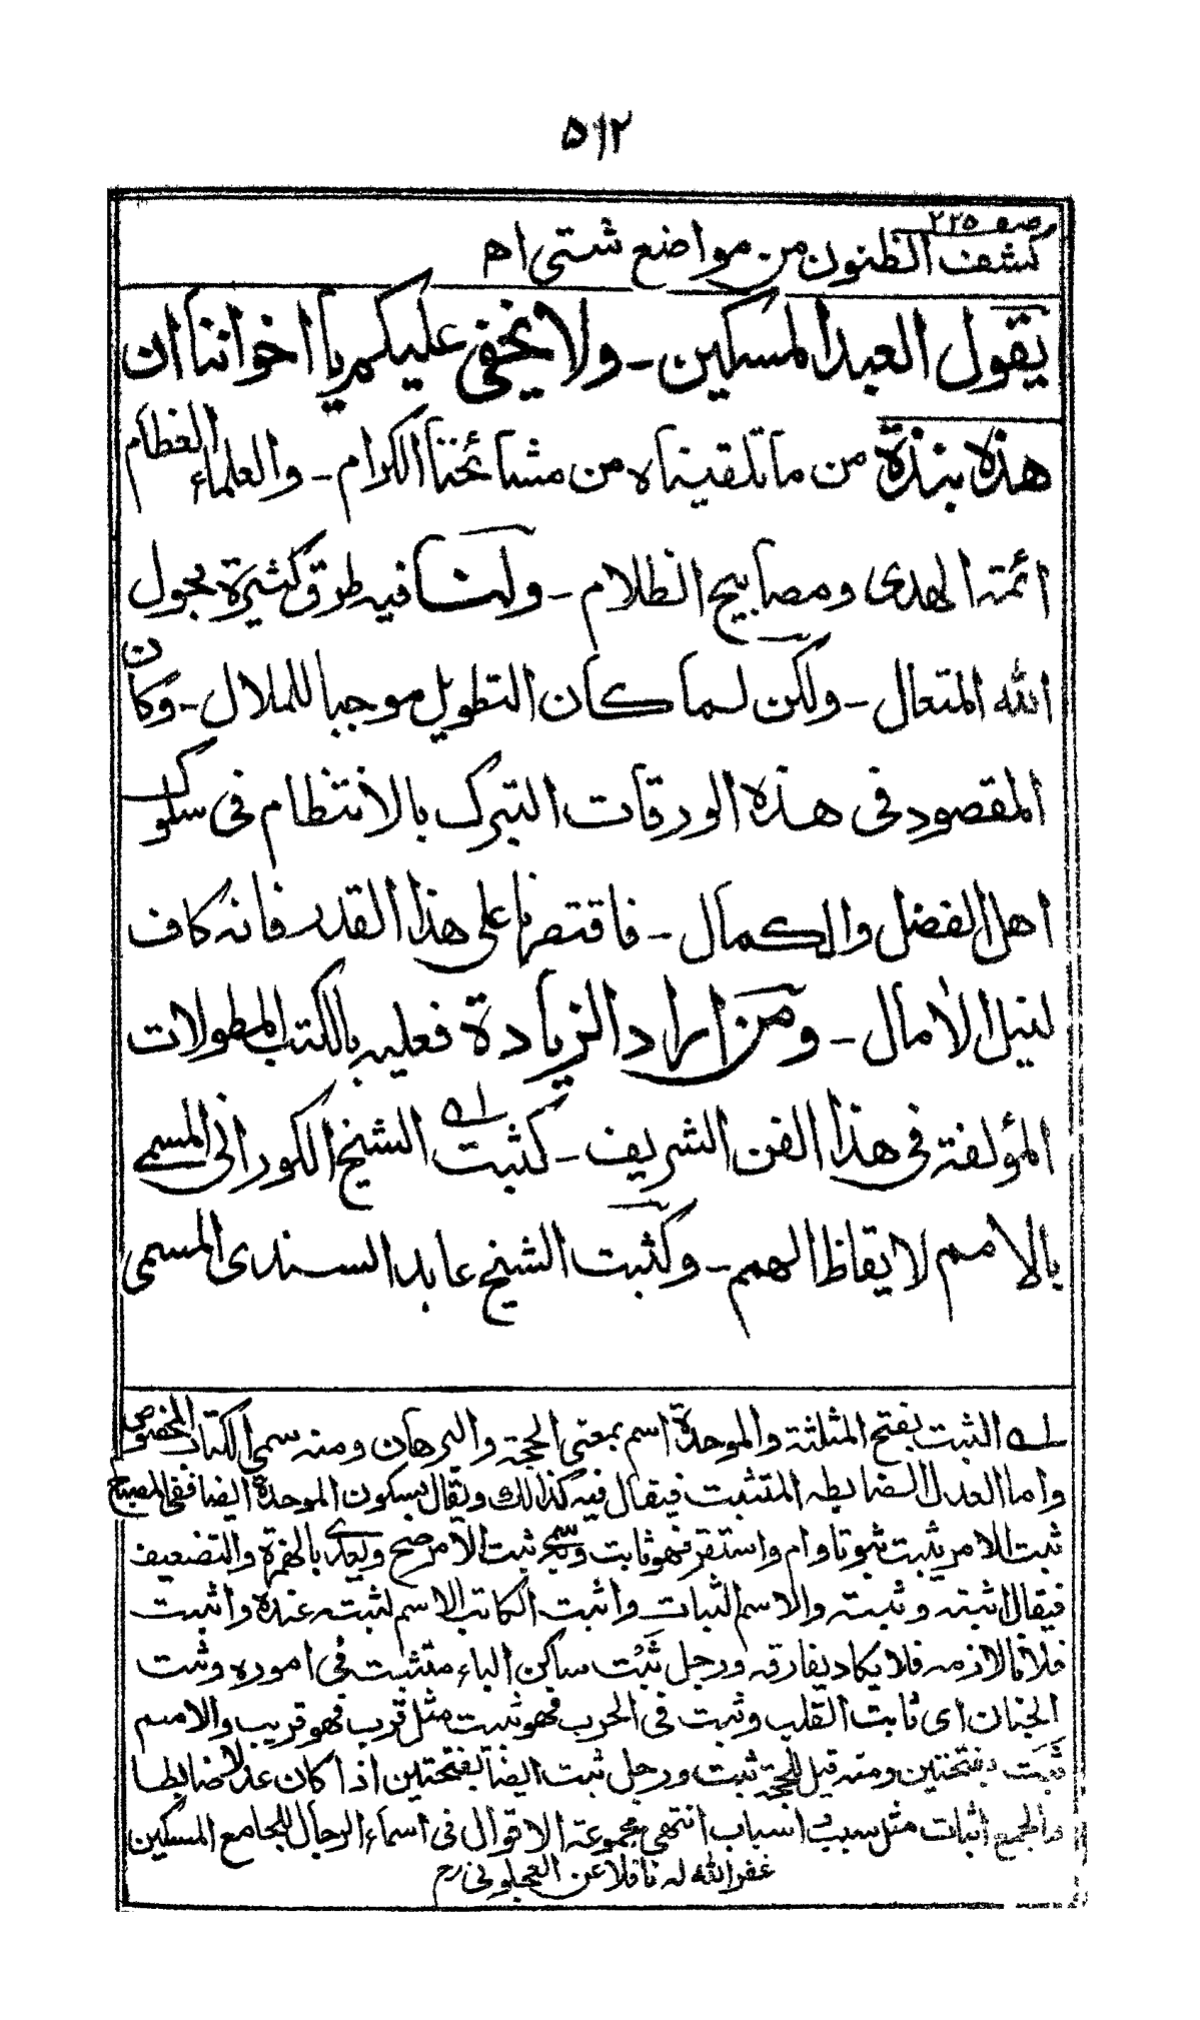 ٥١٢
صفه ٢٢٥
كشف الظنون من مواضع شتى اه
يقول العبد المسكين ـ ولا يخفى عليكم يا اخواننا ان
هذه بنذة من ما تلقيناه من مشائخنا الكرام ـ والعلماء العظام
ائمة الهدى ومصابيح الظلام ـ ولنا فيه طرق كثيرة بحول
الله المتعال ـ ولكن لما كان التطويل موجبا للملال ـ وكان
المقصود فى هذه الورقات التبرك بالانتظام فى سلوك
اهل الفضل والكمال ـ فاقتصرنا على هذا القدر فانه كاف
لنيل الآمال ـ ومن اراد الزيادة فعليه بالكتب المطولات
المؤلفة فى هذا الفن الشريف ـ كثبت له الشيخ الكورانى المسمى
بالامم لايقاظ الهمم ـ وكثبت الشيخ عابد السندى المسمى
له الثبت بفتح المثلثة والموحدة اسم بمعنى الحجة والبرهان ومنه سمى الكتاب المخصوص
واما العدل الضابطه المتثبت فيقال فيه كذالك ويقال بسكون الموحدة ايضا ففى المصباح
ثبت الامر يثبت ثبوتا دام واستقر فهو ثابت وثبت الامر صح ويعدى بالهمزة والتضعيف
فيقال اثبته وثبته والاسم الثبات واثبت الكاتب الاسم لثبته عنده واثبت
فلانا لازمه فلا يكاد يفارقه ورجل ثَبْت ساكن الباء متثبت فى اموره وثبت
الجنان اى ثابت القلب وثبت فى الحرب فهو ثبيت مثل قرب فهو قريب والاسم
ثَبَت بفتحتين ومنه قيل للحجة ثبت ورجل ثبت ايضا بفتحتين اذا كان عدلا ضابطا
والجمع اثبات مثل سبب و اسباب انتهى مجموعة الاقوال فى اسماء الرجال للجامع المسكين
غفر الله له ناقلا عن العجلونى رح